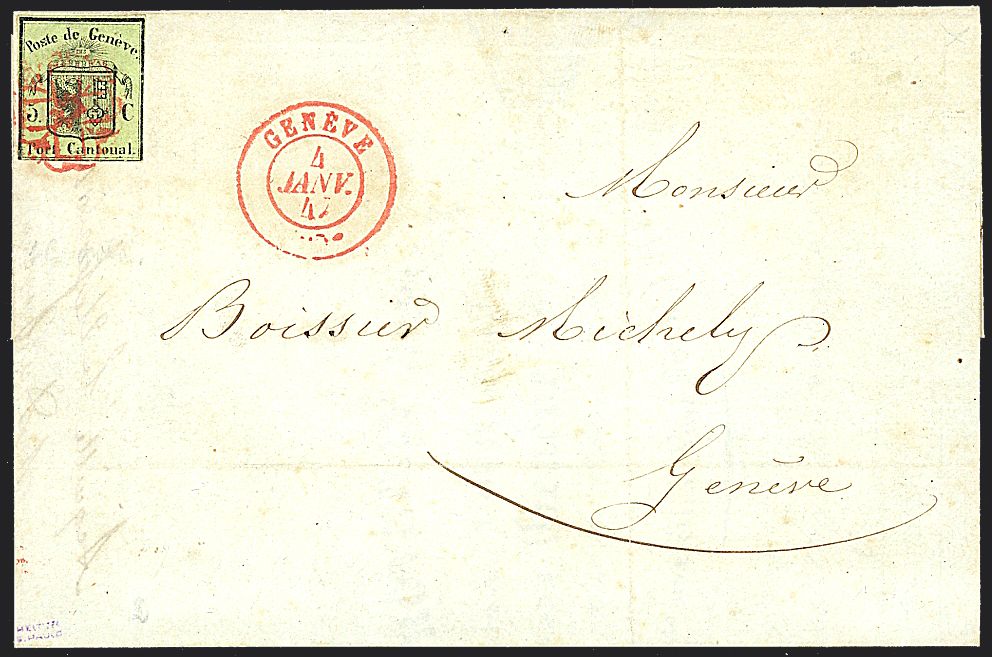 Poste de Genève.
5. C
Port Cantonal.
GENÈVE
4
JANV.
47
Monsieur
Boissier Michely
Genève